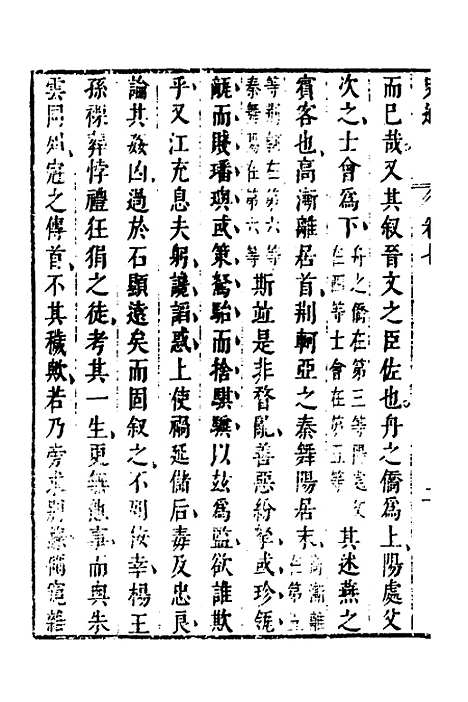 史通　卷七
而已哉又其叙晉文之臣佐也舟之僑爲上陽處父
次之士會爲下舟之僑在第三等陽處父在四等士會在第五等其述燕之
賓客也高漸離居首荆軻亞之秦舞陽居末高漸離在第五
等荆軻在第六等秦舞陽在第六等斯竝是非瞀亂善惡紛拏或珍瓴
甋而賤璠璵或策駑駘而捨騏驥以玆爲監欲誰欺
乎又江充息夫躬讒謟惑上使禍延儲后毒及忠良
論其姦凶過於石顯遠矣而固叙之不列佞幸楊王
孫裸葬悖禮狂狷之徒考其一生更無他事而與朱
雲同列冠之傳首不其穢歟若乃旁求別録側窺雜